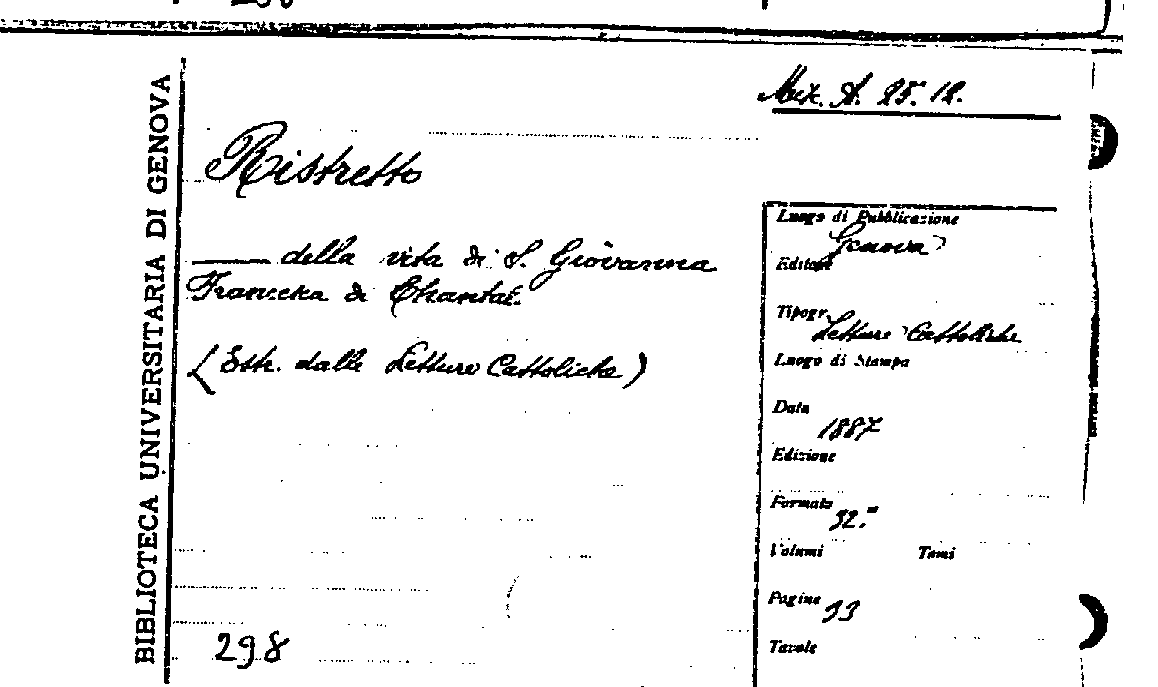 BIBLIOTECA UNIVERSITARIA DI GENOVA
Mix. A. 25. 12.
Ristretto
—— della vita di S. Giovanna
Francesca di Chantal.
(Estr. dalle Letture Cattoliche)
298
Luogo di Pubblicazione
Genova
Editore
Tipogr.
Letture Cattoliche
Luogo di Stampa
Data
1887
Edizione
Formato
32.°
Volumi Tomi
Pagine
33
Tavole